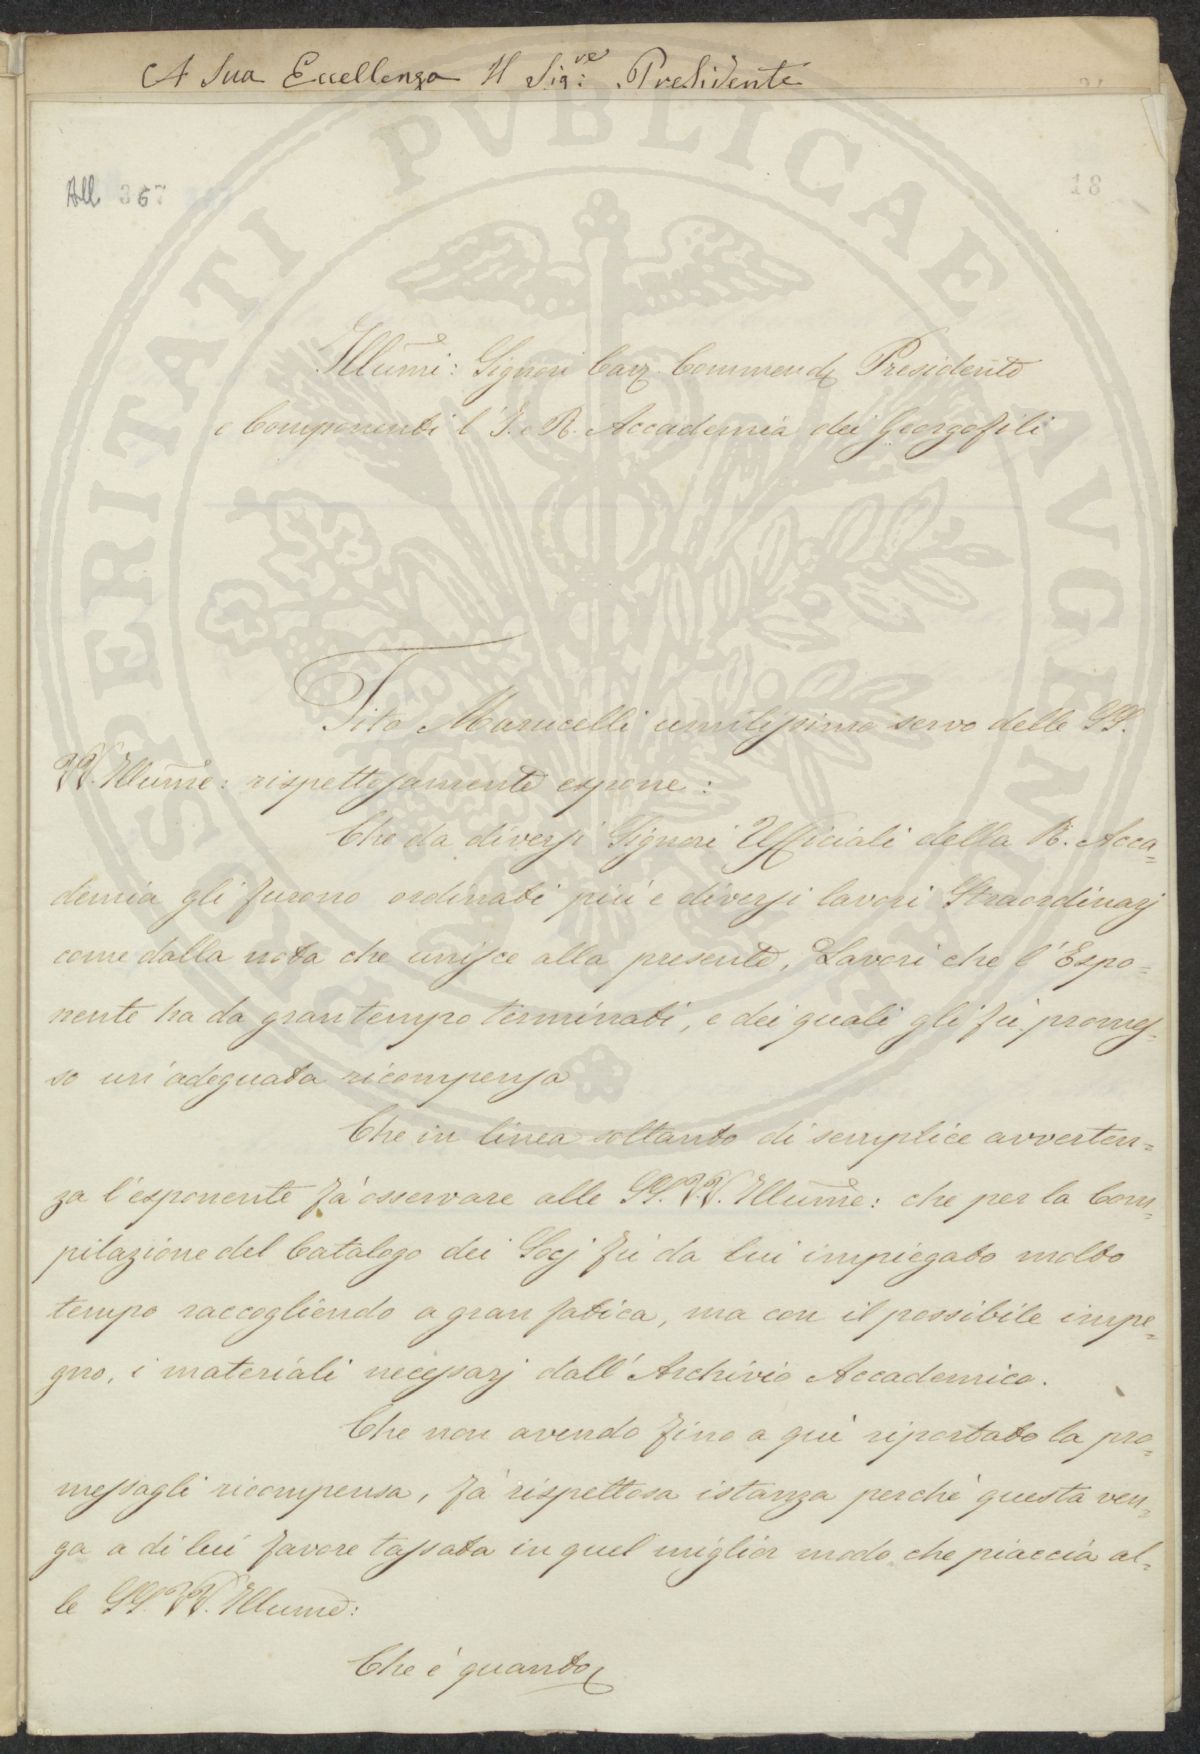 A Sua Eccellenza Il Sig:re Presidente
All 367
18
Illumi: Signori Cav. Commend. Presidente
e Componenti l'I. e R. Accademia dei Georgofili
Tito Marucelli umilissimo servo delle SS.
VV. Illume: rispettosamente espone:
Che da diversi Signori Ufficiali della R. Acca=
demia gli furono ordinati più e diversi lavori Straordinarj
come dalla nota che unisce alla presente, Lavori che l'Espo=
nente ha da gran tempo terminati, e dei quali gli fù promes=
so un'adeguata ricompensa
Che in linea soltanto di semplice avverten=
za l'esponente fà osservare alle SS. VV. Illume: che per la Com=
pilazione del Catalogo dei Socj fù da lui impiegato molto
tempo raccogliendo a gran fatica, ma con il possibile impe=
gno, i materiali necessarj dall'Archivio Accademico.
Che non avendo fino a quì riportato la pro=
messagli ricompensa, fà rispettosa istanza perchè questa ven=
ga a di lui favore tassata in quel miglior modo che piaccia al=
le SS. VV. Illume:
Che è quanto
PROSPERITATI PVBLICAE AVGENDAE